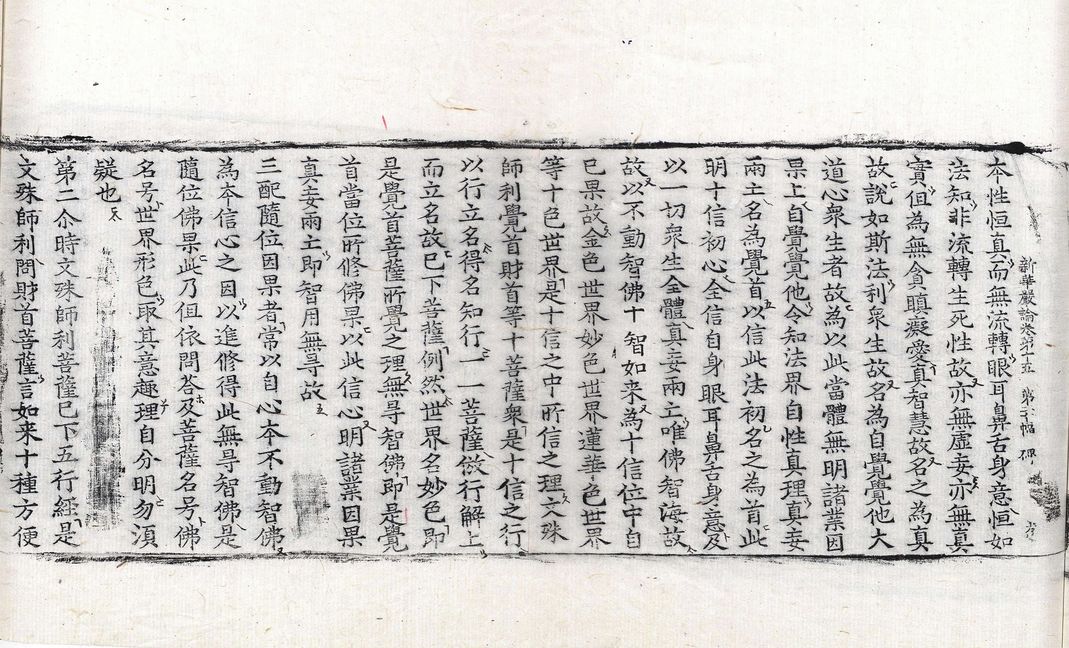 新華嚴論卷第十五 第 帖 碑
本性恒真而無流轉眼耳鼻舌身意恒如
法知非流轉生死性故亦無虛妄亦無真
實但為無貪瞋癡愛真智慧故名之為真
故說如斯法利衆生故名為自覺覺他大
道心衆生者故為以此當體無明諸業因
果上自覺覺他令知法界自性真理真妄
兩土名為覺首以信此法初名之為首此
明十信初心全信自身眼耳鼻舌身意及
以一切衆生全體真妄兩土唯佛智海故
故以不動智佛十智如来為十信位中自
已果故金色世界妙色世界蓮華色世界
等十色世界是十信之中所信之理文殊
師利覺首財首等十菩薩衆是十信之行
以行立名得名知行一一菩薩倣行解上
而立名故已下菩薩例然世界名妙色即
是覺首菩薩所覺之理無㝵智佛即是覺
首當位所修佛果以此信心明諸業因果
真妄兩土即智用無㝵故
三配隨位因果者常以自心本不動智佛
為本信心之因以進修得此無㝵智佛是
隨位佛果此乃但依問荅及菩薩名号佛
名号世界形色取其意趣理自分明勿湏
疑也
第二尒時文殊師利菩薩已下五行經是
文殊師利問財首菩薩言如来十種方便